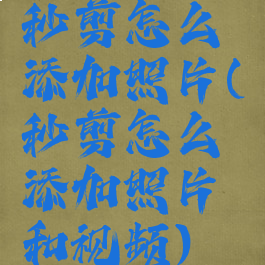 秒剪怎么
添加照片(
秒剪怎么
添加照片
和视频)